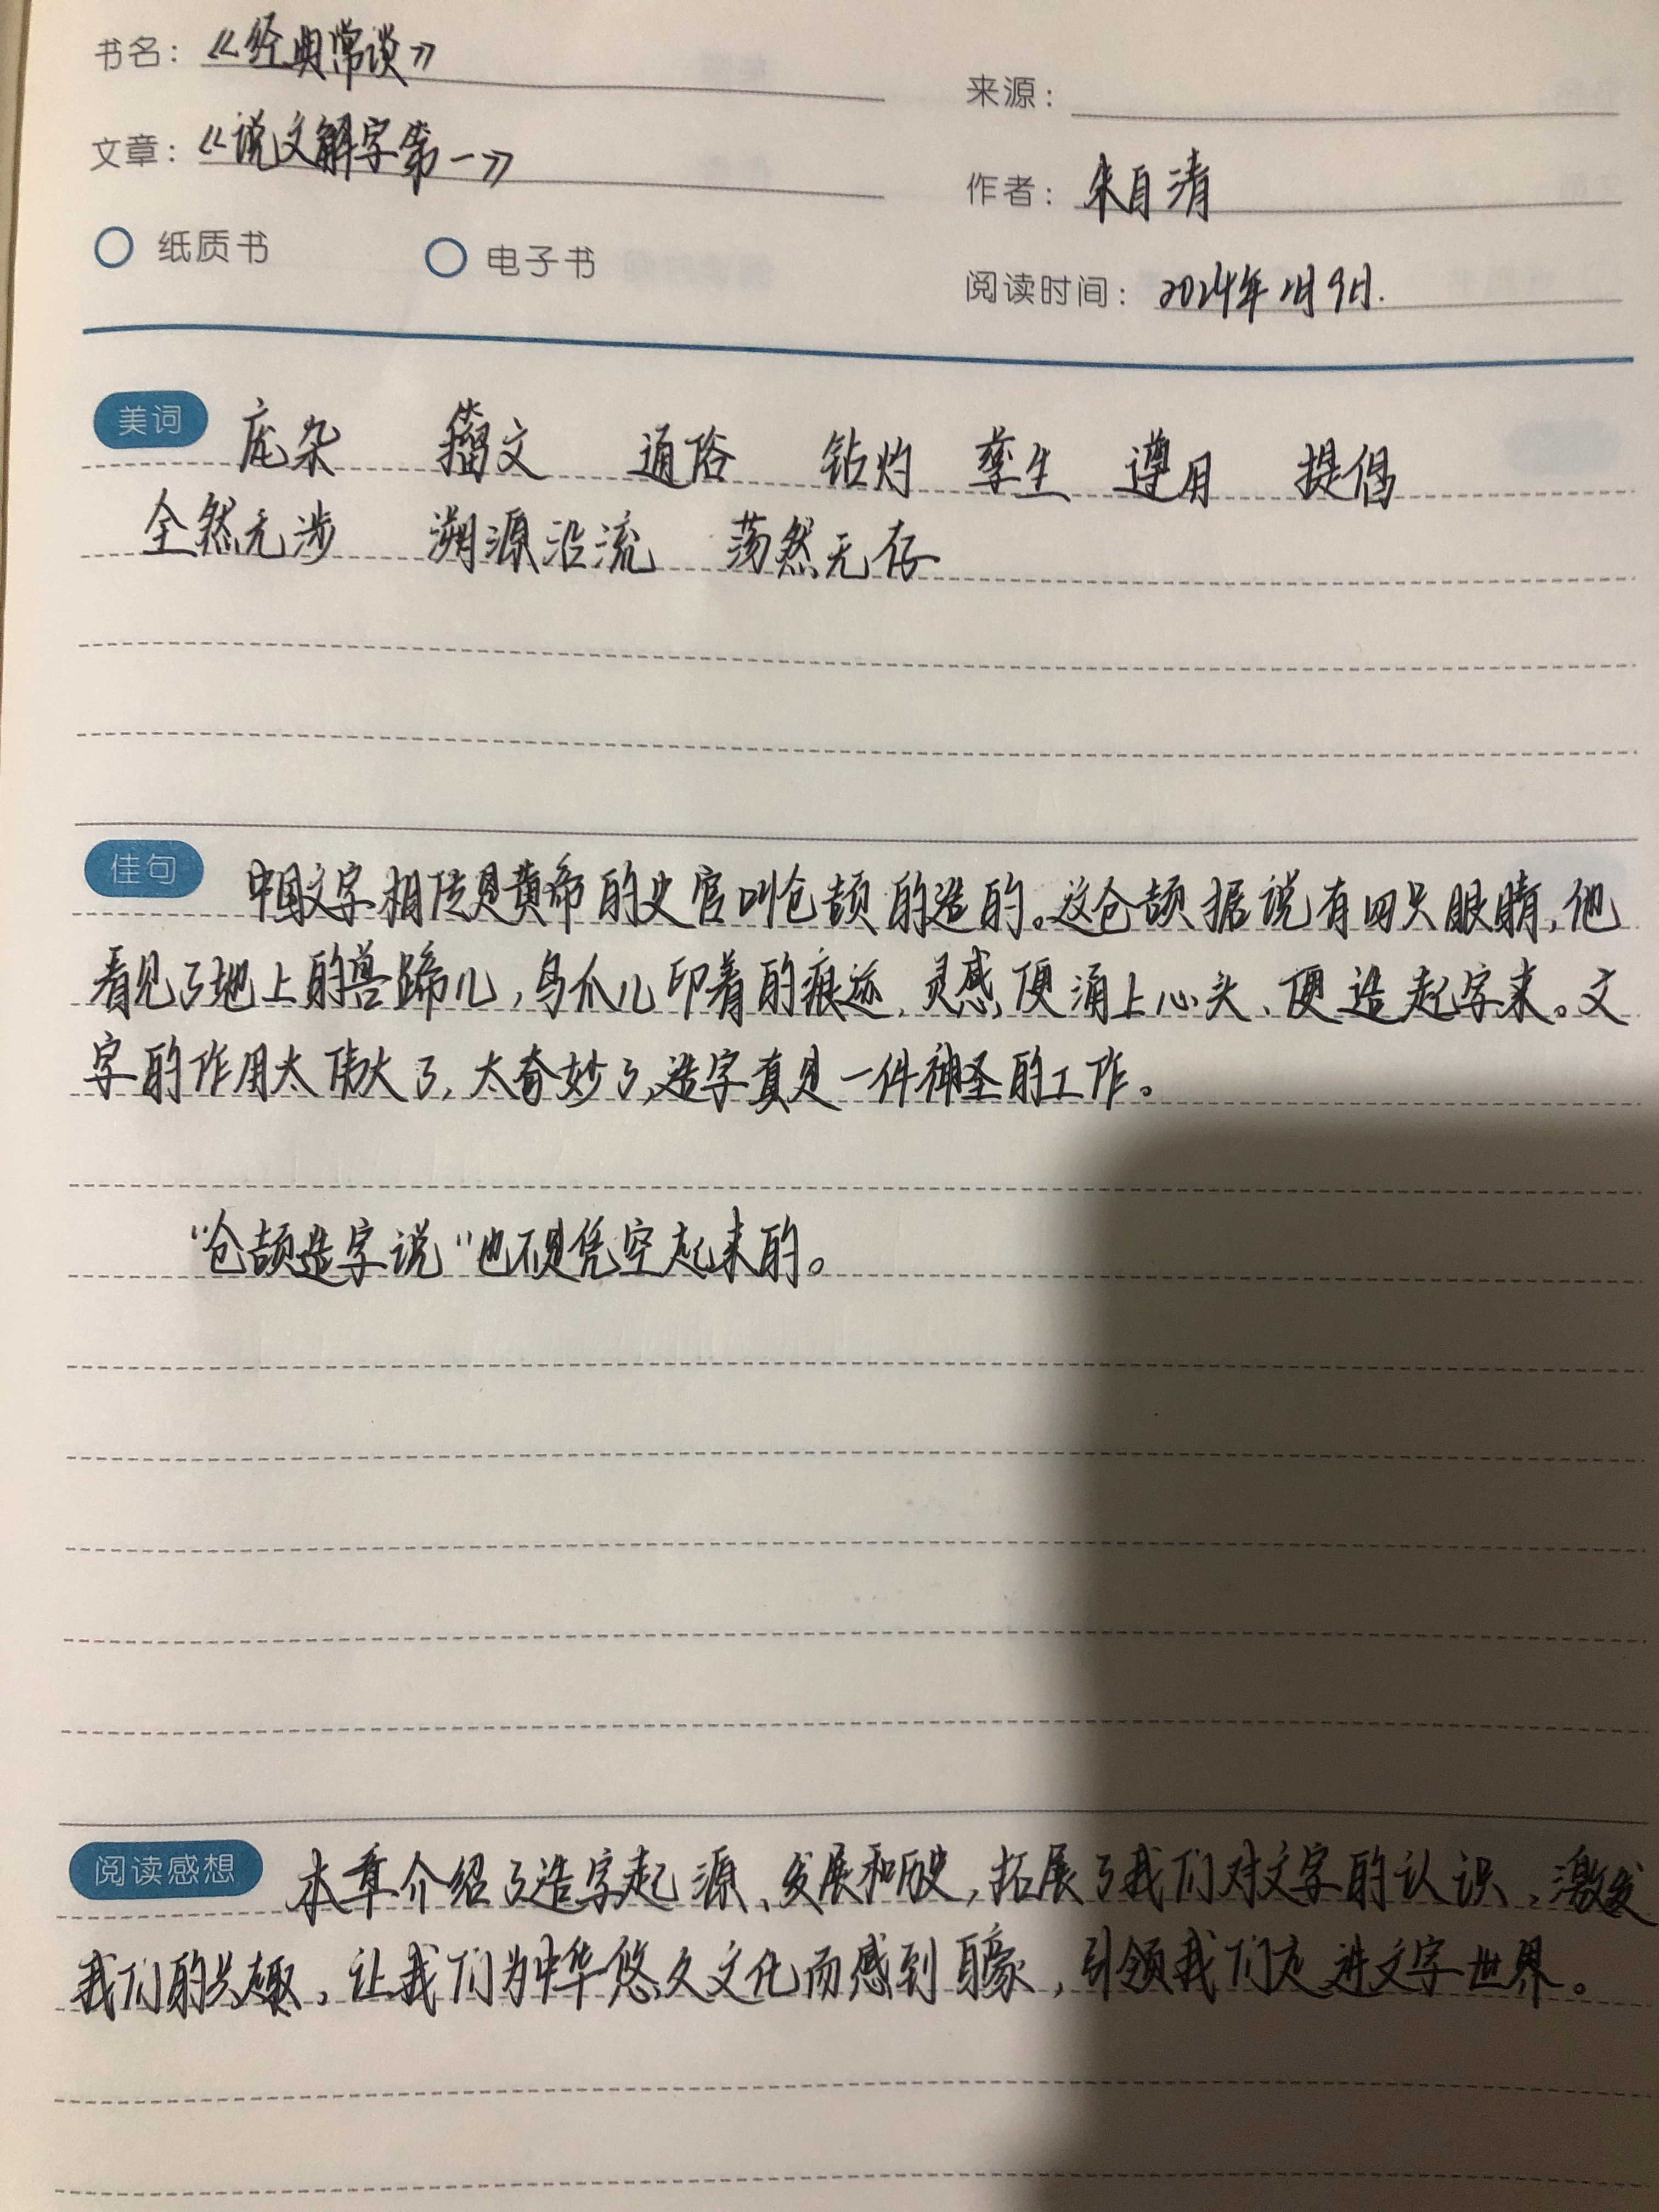 书名：《经典常谈》
来源：
文章：《说文解字第一》
作者：朱自清
纸质书 电子书
阅读时间：2024年2月9日.
美词 庞杂 籀文 通俗 钻灼 孳生 遵用 提倡
全然无涉 溯源沿流 荡然无存
佳句 中国文字相传是黄帝的史官叫仓颉的造的。这仓颉据说有四只眼睛，他
看见了地上的兽蹄儿，鸟爪儿印着的痕迹，灵感便涌上心头、便造起字来。文
字的作用太伟大了，太奇妙了，造字真是一件神圣的工作。
“仓颉造字说”也不是凭空起来的。
阅读感想 本章介绍了造字起源、发展和历史，拓展了我们对文字的认识，激发
我们的兴趣，让我们为中华悠久文化而感到自豪，引领我们走进文字世界。